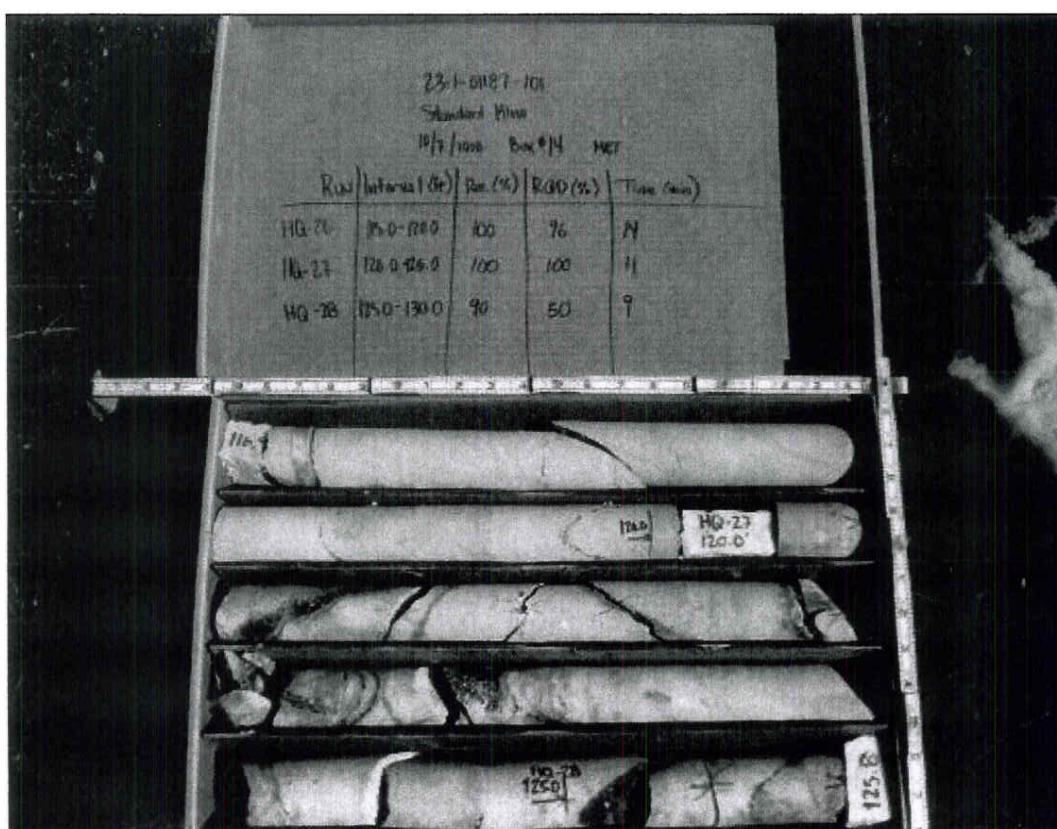 Standard Mine
Box #14
Run Interval (ft) Rec (%) RQD (%) Time (min)
HQ-26 115.0-120.0 100 96 14
HQ-27 120.0-125.0 100 100 11
HQ-28 125.0-130.0 90 50 9
116.9
120.0
HQ-27
120.0'
HQ-28
125.0
125.8